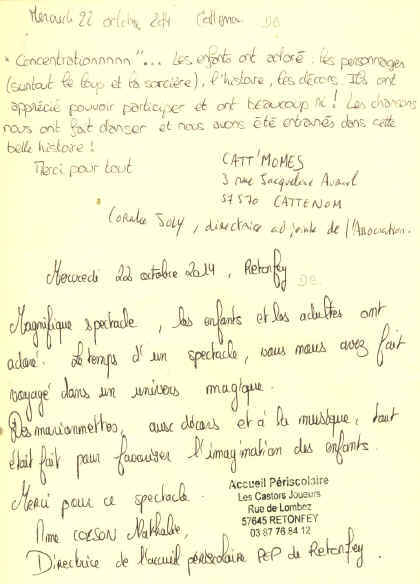 Mercredi 22 octobre 2014 Cattenom
"Concentrationnnnn"... Les enfants ont adoré : les personnages
(surtout le loup et la sorcière), l'histoire, les décors. Ils ont
apprécié pouvoir participer et ont beaucoup ri ! Les chansons
nous ont fait danser et nous avons été entrainés dans cette
belle histoire !
Merci pour tout
CATT'MOMES
3 rue Jacqueline Auriol
57570 CATTENOM
Coralie JOLY, directrice adjointe de l'Association.
Mercredi 22 octobre 2014, Retonfey
Magnifique spectacle, les enfants et les adultes ont
adoré. Le temps d'un spectacle, vous nous avez fait
voyagé dans un univers magique.
Des marionnettes, aux décors et à la musique, tout
était fait pour favoriser l'imagination des enfants.
Merci pour ce spectacle.
Accueil Périscolaire
Les Castors Joueurs
Rue de Lombez
57645 RETONFEY
03 87 76 84 12
Mme CORSON Nathalie,
Directrice de l'accueil périscolaire PEP de Retonfey.